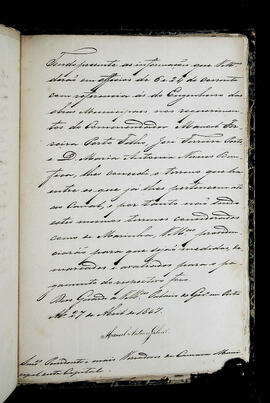 Tendo presente as informações que V.Mces
derão em officios de 6 e 24 do corrente
com referencia ás do Engenheiro das
obras Municipaes nos requerimen-
tos do Commendador Manoel Fer-
reira Porto Filho, José Ferreira Porto
e D. Maria Antonia Nunes
lhes concedo o terreno que ha
entre os que já lhes pertencem até
ao Canal, e por tanto não sendo
este mesmo terreno considerado
como de Marinha, V.Mces providen-
ciarão para que seja medido, de-
marcado e avaliado para o pa-
gamento do respectivo fôro.
Deos Guarde a V.Mces Palacio do Governo
27 de Abril de 1847.
Manoel Antonio
Snrs. Presidente, e mais Vereadores da Camara Muni-
cipal desta Capital.